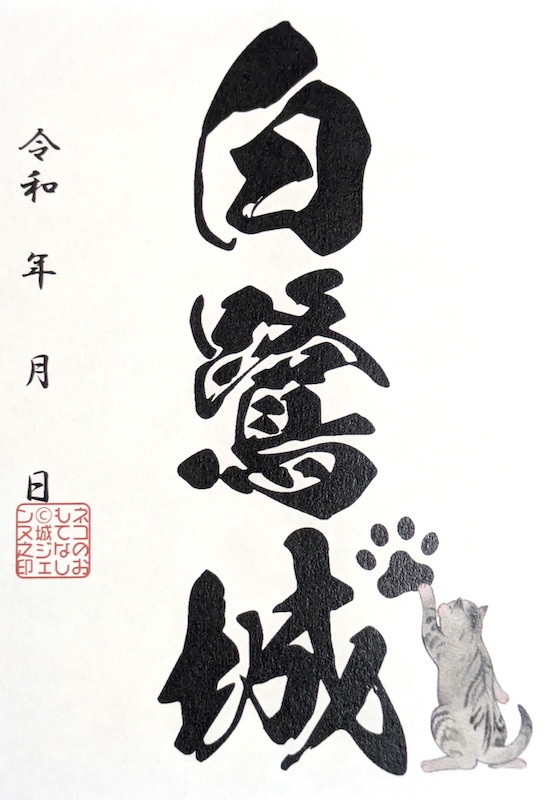 白鷺城
令和 年 月 日
ネコのお
もてなし
©城ジェ
ンヌ之印